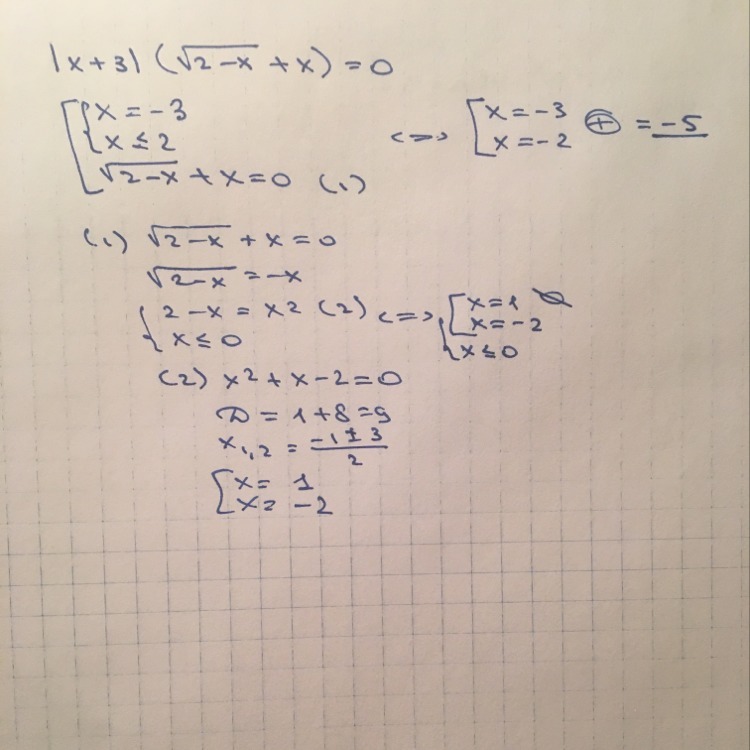 |x+3| (√2-x + x) = 0
x = -3
x ≤ 2
√2-x + x = 0 (1)
<=> x = -3
x = -2 ⊕ = -5
(1) √2-x + x = 0
√2-x = -x
2-x = x² (2)
x ≤ 0
<=> x = 1 ∅
x = -2
x ≤ 0
(2) x² + x - 2 = 0
D = 1+8 = 9
x1,2 = -1±3 / 2
x = 1
x = -2